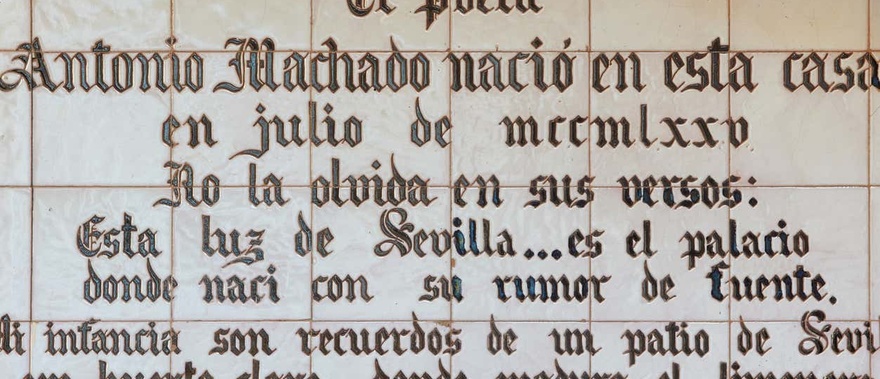 El poeta
Antonio Machado nació en esta casa
en julio de mccmlxxv
No la olvida en sus versos:
Esta luz de Sevilla...es el palacio
donde naci con su rumor de fuente.
Mi infancia son recuerdos de un patio de Sevil